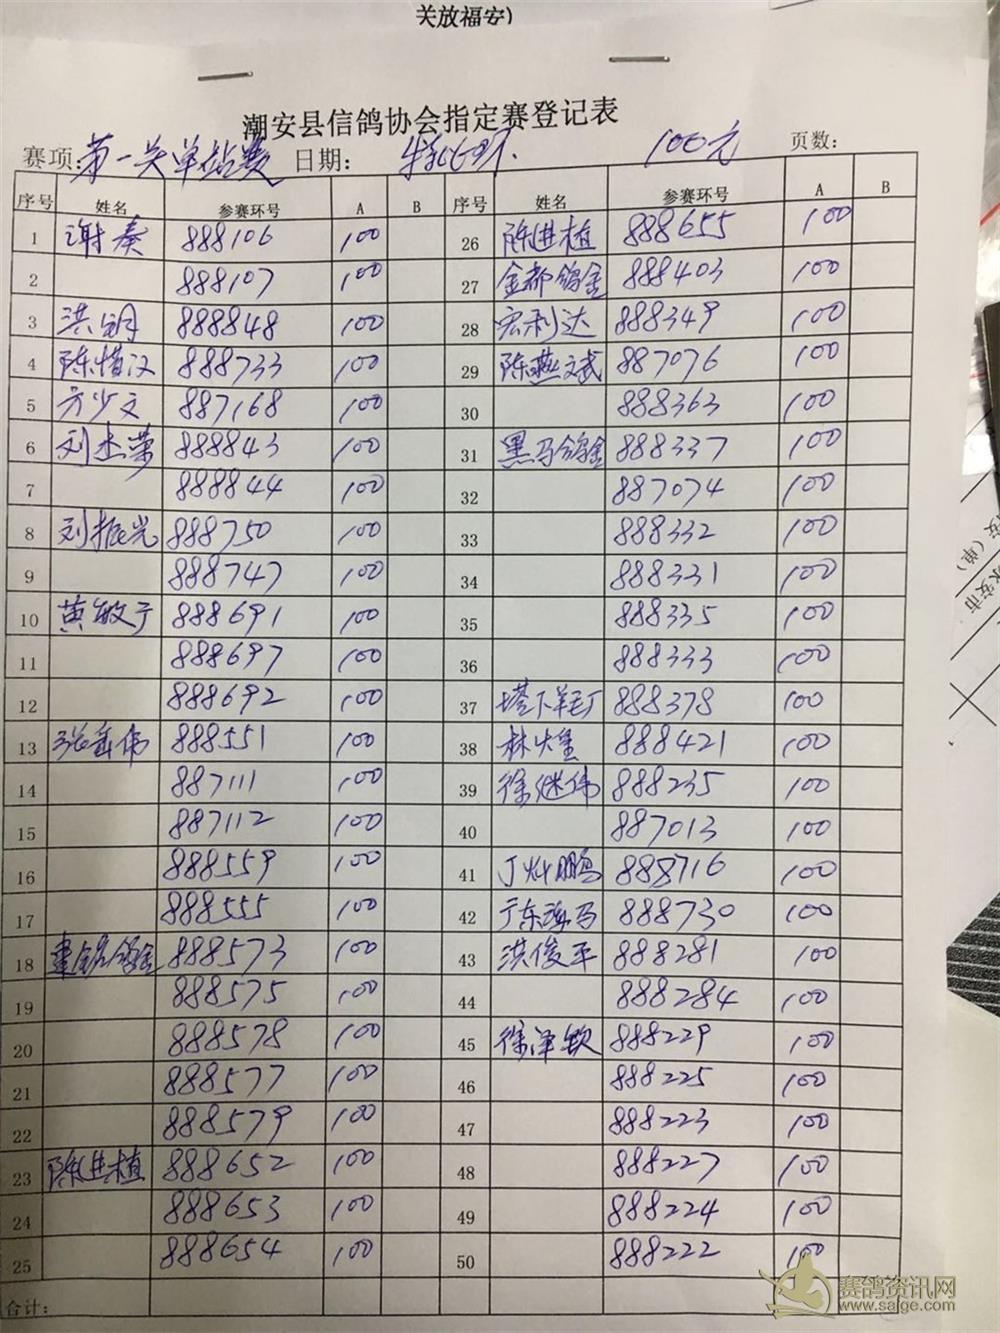 关放福安)
潮安县信鸽协会指定赛登记表
赛项:第一关单站赛 日期: 特比环 100元 页数:
序号 姓名 参赛环号 A B 序号 姓名 参赛环号 A B
1 谢奏 888106 100 26 陈进植 888655 100
2 888107 100 27 金都鸽舍 888403 100
3 洪 888848 100 28 宏利达 888349 100
4 陈惜汉 888733 100 29 陈燕斌 887076 100
5 方少文 887168 100 30 888363 100
6 刘杰荣 888843 100 31 黑马鸽舍 888337 100
7 888844 100 32 887074 100
8 刘振光 888750 100 33 888332 100
9 888747 100 34 888331 100
10 黄敏于 888691 100 35 888335 100
11 888697 100 36 888333 100
12 888692 100 37 塔下羊 888378 100
13 张岳伟 888551 100 38 林火皇 888421 100
14 887111 100 39 徐继伟 888235 100
15 887112 100 40 887013 100
16 888559 100 41 丁灿鹏 888716 100
17 888555 100 42 广东海马 888730 100
18 建铭鸽舍 888573 100 43 洪俊平 888281 100
19 888575 100 44 888284 100
20 888578 100 45 徐泽钦 888229 100
21 888577 100 46 888225 100
22 888579 100 47 888223 100
23 陈进植 888652 100 48 888227 100
24 888653 100 49 888224 100
25 888654 100 50 888222 100
合计:
安(单)
永安市
赛鸽资讯网
www.saige.com